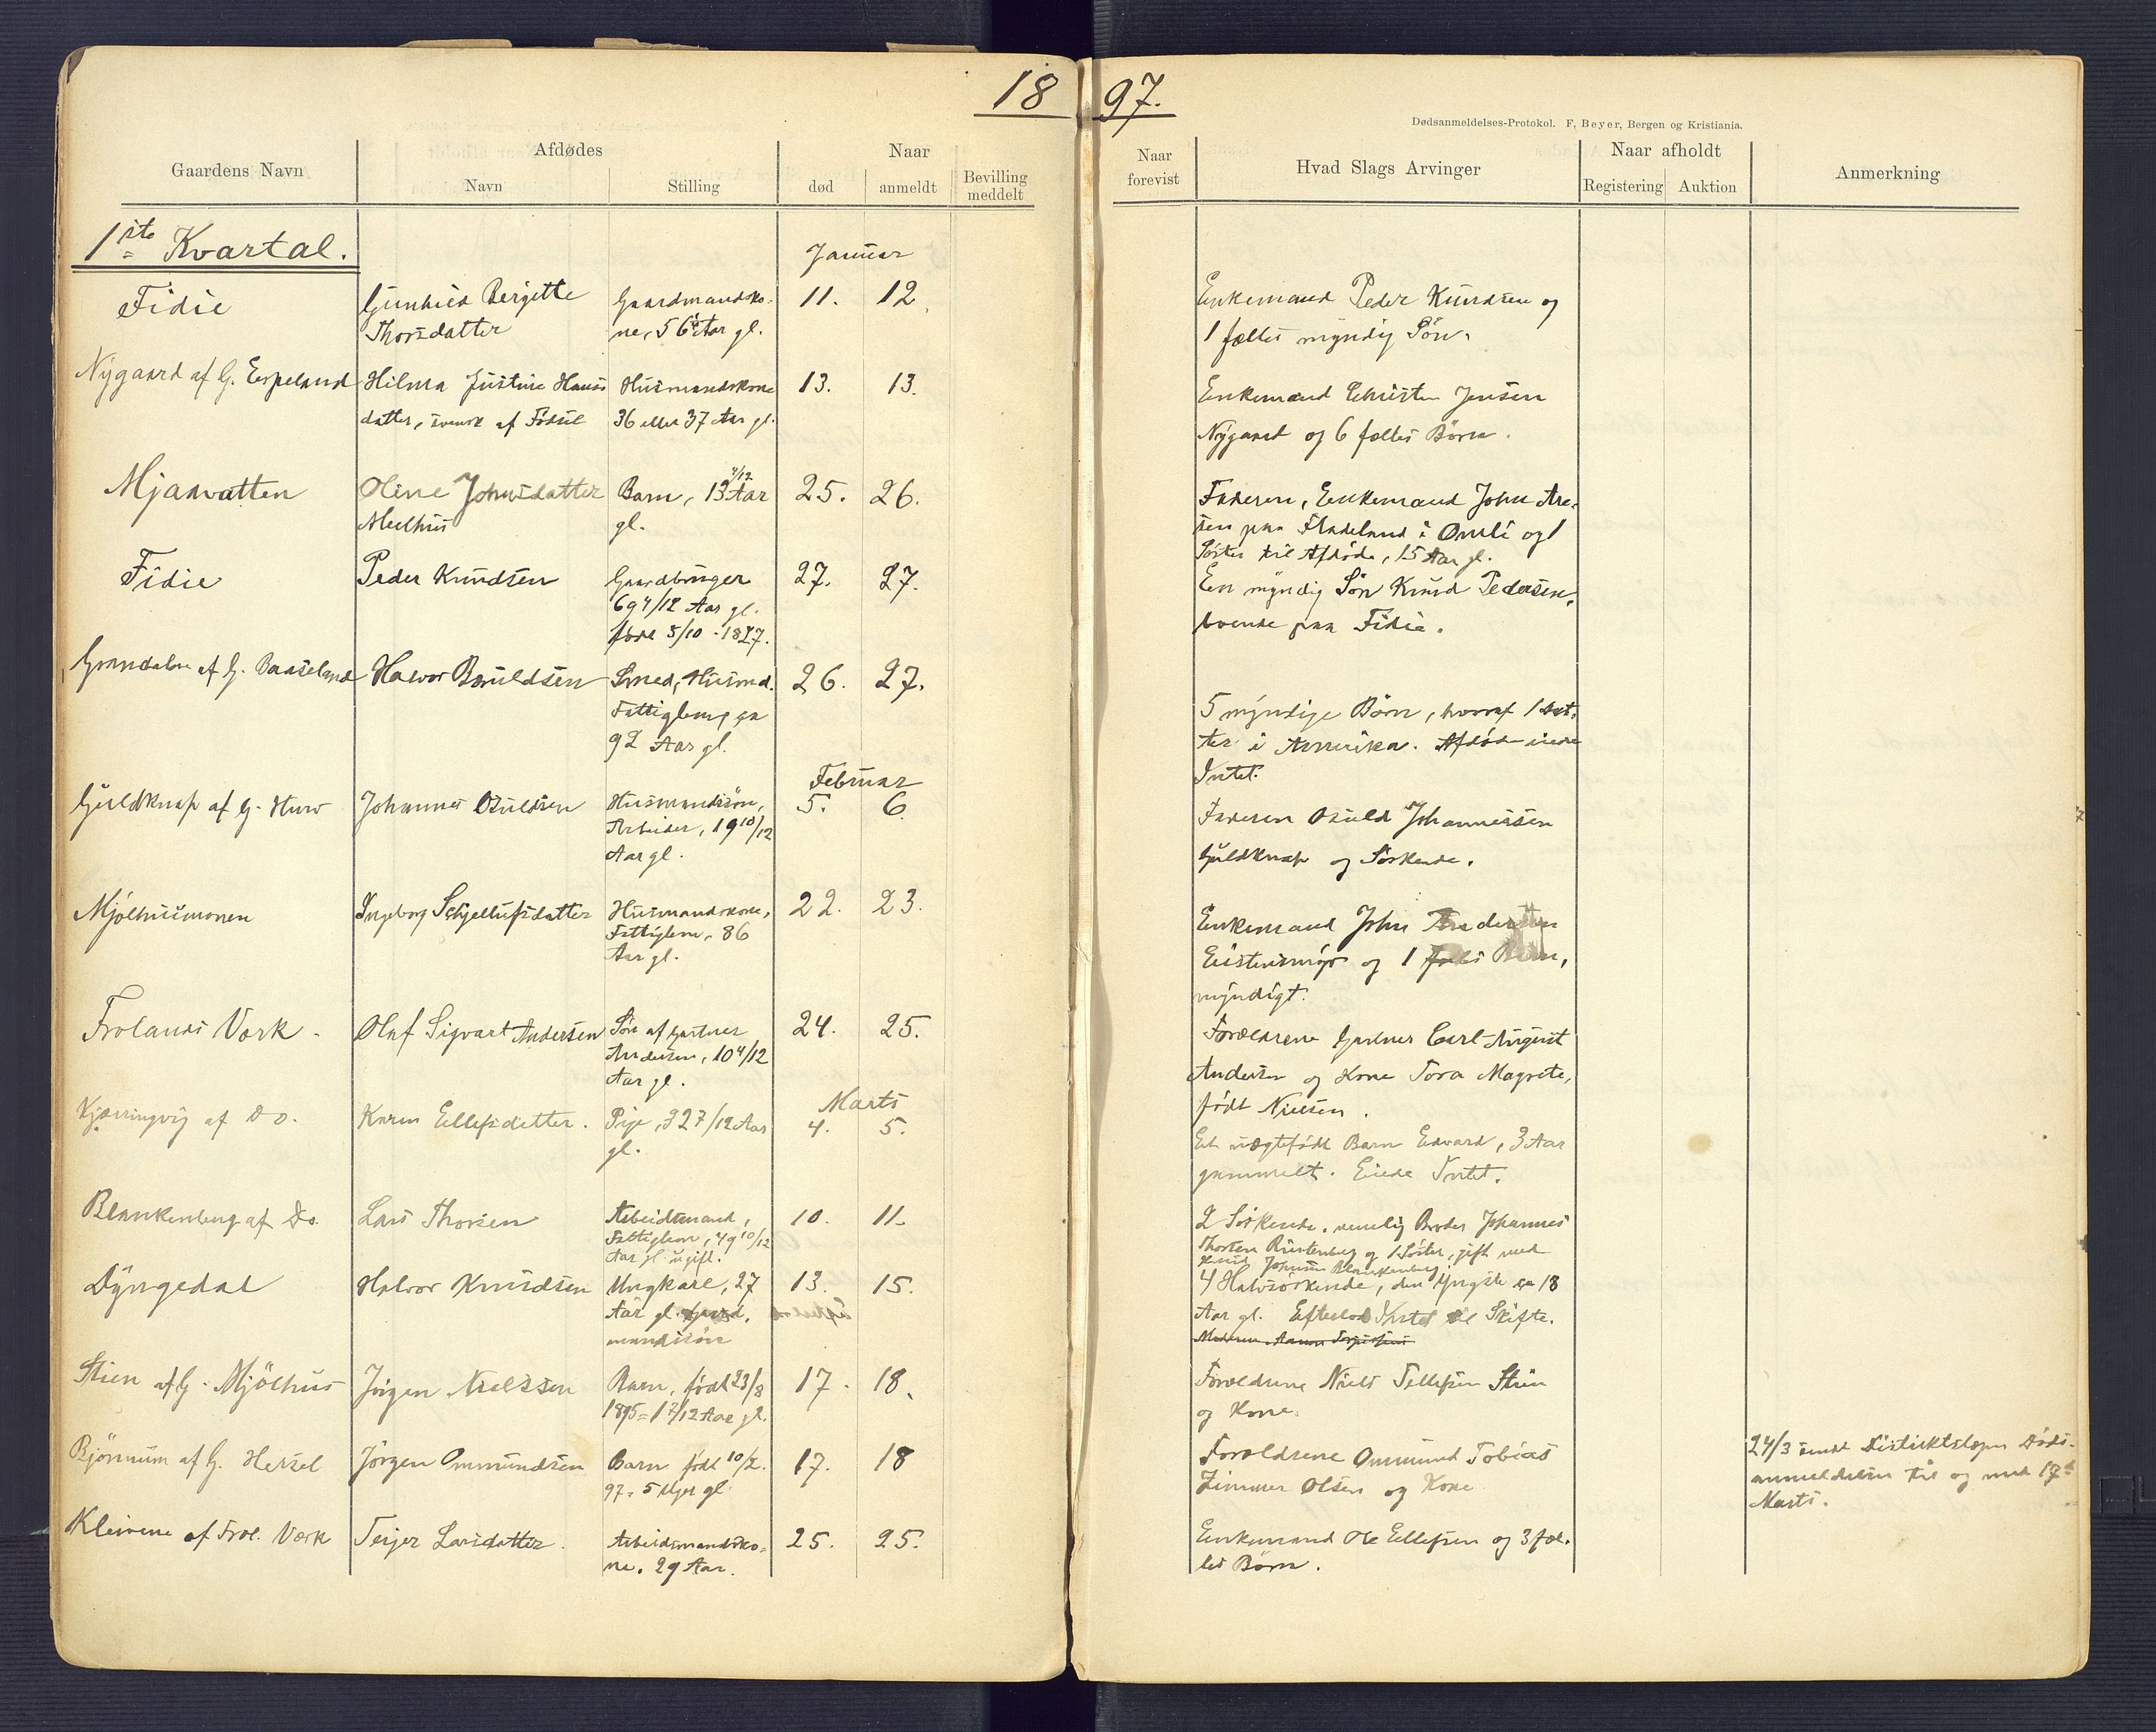 18 97.
Dødsanmeldelses-Protokol. F. Beyer, Bergen og Kristiania.
Gaardens Navn
Afdødes
Navn
Stilling
Naar
død
anmeldt
Bevilling
meddelt
Naar
forevist
Hvad Slags Arvinger
Naar afholdt
Registering
Auktion
Anmerkning
1ste Kvartal.
Januar
Fidie
Gunhild Bergitte
Thorsdatter
Gaardmandsko-
ne, 56 Aar gl.
11. 12.
Enkemand Peder Knudsen og
1 fælles myndig Søn.
Nygaard af G. Espeland
Hilma Justine Hans
datter, svensk af Fødsel
Husmandskone
36 eller 37 Aar gl.
13. 13.
Enkemand Christen Jensen
Nygaard og 6 fælles Børn.
Mjaavatten
Oline Johnsdatter
Mælhus
Barn, 13 Aar
gl.
25. 26.
Faderen, Enkemand John Are-
sen paa Fladeland i Omli og 1
Søster til Afdøde, 15 Aar gl.
Fidie
Peder Knudsen
Gaardbruger
69 4/12 Aar gl.
født 5/10 - 1827.
27. 27.
En myndig Søn Knud Pedersen,
boende paa Fidie.
Grøndalen af G. Baaseland
Halvor Osuldsen
Smed, Husmd.
Fattiglem, ca
92 Aar gl.
26. 27.
5 myndige Børn, hvoraf 1 Dat-
ter i Amerika. Afdøde eiede
Intet.
Februar
Guldknap af G. Hurv
Johannes Osuldsen
Husmandssøn,
Arbeider, 19 10/12
Aar gl.
5. 6
Faderen Osuld Johannessen
Guldknap og Søskende.
Mjølhusmonen
Ingeborg Schjellufsdatter
Husmandskone,
Fattiglem, 86
Aar gl.
22. 23.
Enkemand John
og 1 fælles Barn,
myndigt.
Frolands Værk
Olaf Sigvart Andersen
Søn af Gartner
Andersen, 10 4/12
Aar gl.
24. 25.
Forældrene Gartner Carl August
Andersen og Kone Tora Magrete,
født Nielsen.
Marts
Kjærringvig af Do.
Karen Ellefsdatter.
Pige, 32 7/12 Aar
gl.
4. 5.
Et uægtefødt Barn Edvard, 3 Aar
gammelt. Eiede Intet.
Blankenberg af Do.
Lars Thorsen
Arbeidsmand,
Fattiglem, 49 10/12
Aar gl. ugift.
10. 11.
2 Søskende, nemlig Broder Johannes
Thorsen Rustenberg og 1 Søster, gift med
Knud Johnsen Blankenberg.
Dyngedal
Halvor Knudsen
Ungkarl, 27
Aar gl. Gaard,
mandssøn
13. 15.
4 Halvsøskende, den Yngste ca 18
Aar gl. Efterlod Intet til Skifte.
Stien af G. Mjölhus
Jörgen Nielssen
Barn, født 23/8
1895 = 1 7/12 Aar gl.
17. 18.
Forældrene Niels Tellefsen Stien
og Kone.
Bjørnum af G. Heisel
Jörgen Ommundsen
Barn født 10/2.
97 = 5 Uger gl.
17. 18
Forældrene Ommund Tobias
Zimmer Olsen og Kone
24/3 sendt Distriktslægen Døds-
anmeldelsen til og med 17de
Marts.
Kleivene af Frol. Værk
Terjer Larsdatter.
Arbeidsmandsko-
ne. 29 Aar.
25. 25.
Enkemand Ole Ellefsen og 3 fæl-
les Børn.